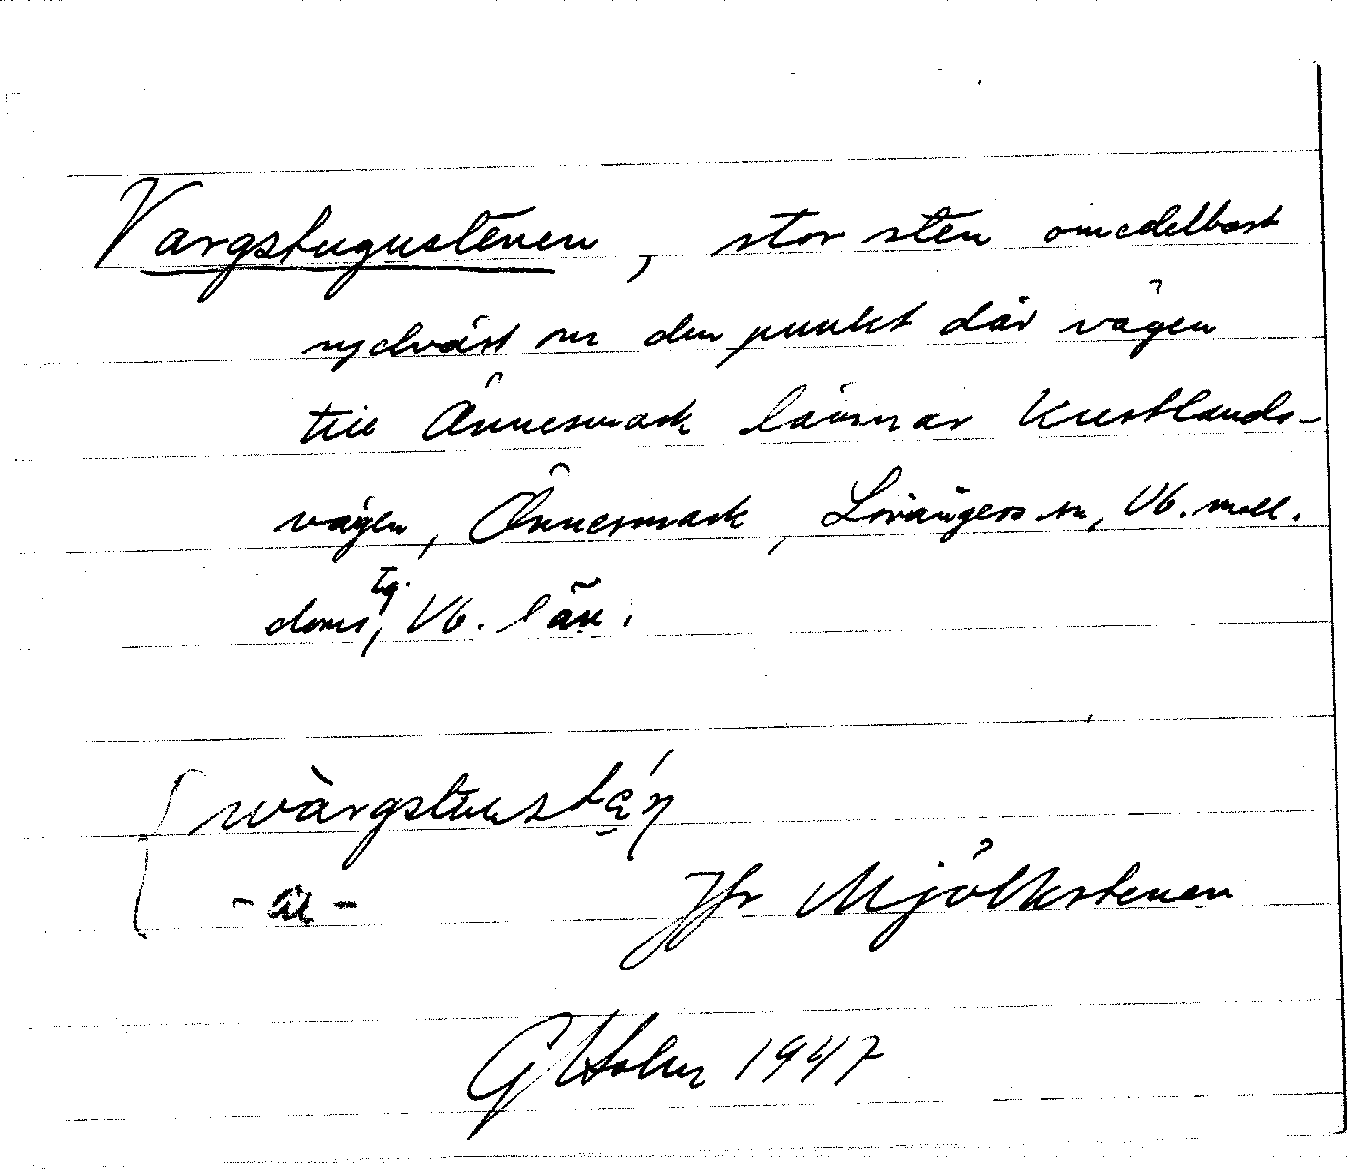 Vargstugustenen, stor sten omedelbart
sydväst om den punkt där vägen
till Önnesmark lämnar Kustlands-
vägen, Önnesmark, Lövångers sn, Vb. mell.
doms tg, Vb. län.
wàrgstu
- -
Jfr Mjölkstenen
G Holm 1947